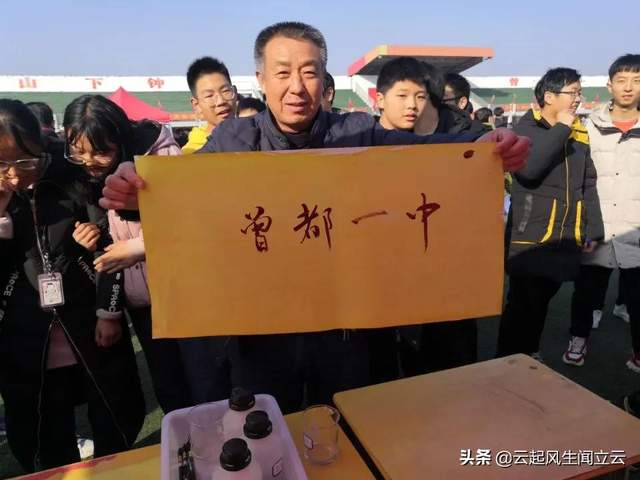 山下钟
曾
曾都一中
头条 @云起风生闻立云